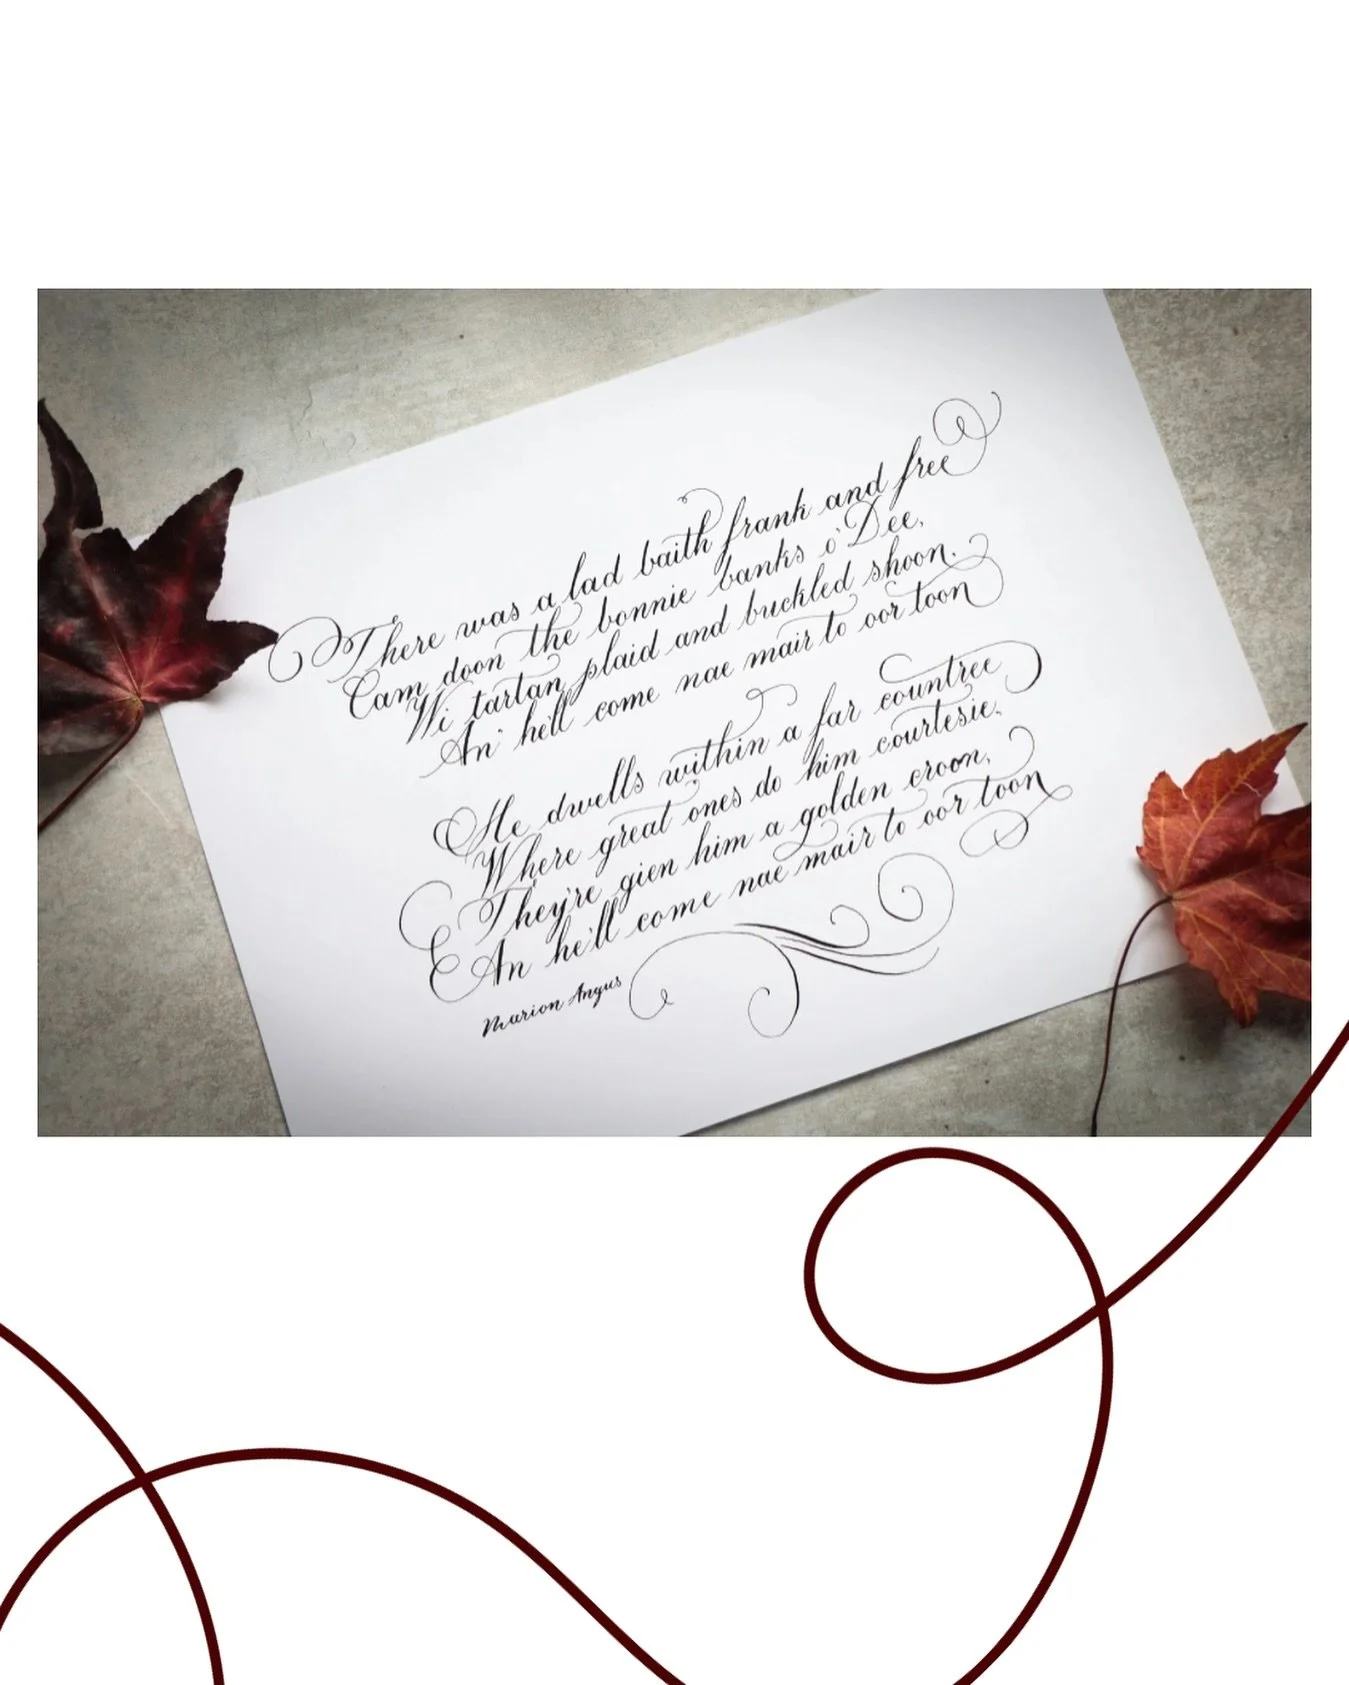 There was a lad baith frank and free
Cam doon the bonnie banks o' Dee,
Wi tartan plaid and buckled shoon.
An' he'll come nae mair to oor toon
He dwells within a far countree
Where great ones do him courtesie,
They're gien him a golden croon,
An he'll come nae mair to oor toon
Marion Angus